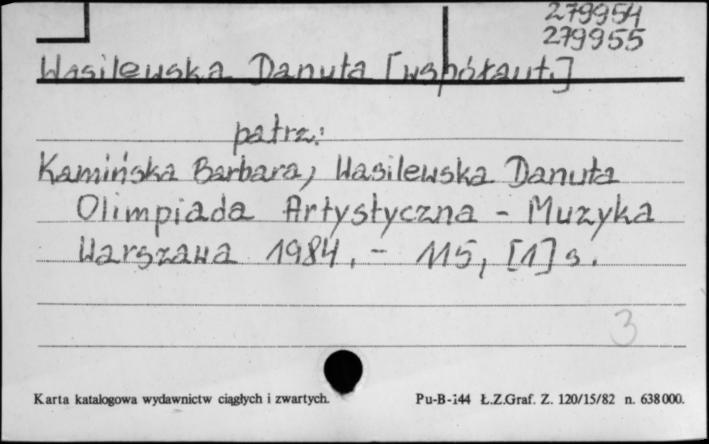 279954
279955
Wasilewska Danuta [współaut.]
patrz:
Kamińska Barbara, Wasilewska Danuta
Olimpiada Artystyczna - Muzyka
Warszawa 1984. - 115, [1] s.
3
Karta katalogowa wydawnictw ciągłych i zwartych. Pu-B-144 Ł.Z.Graf. Z. 120/15/82 n. 638000.